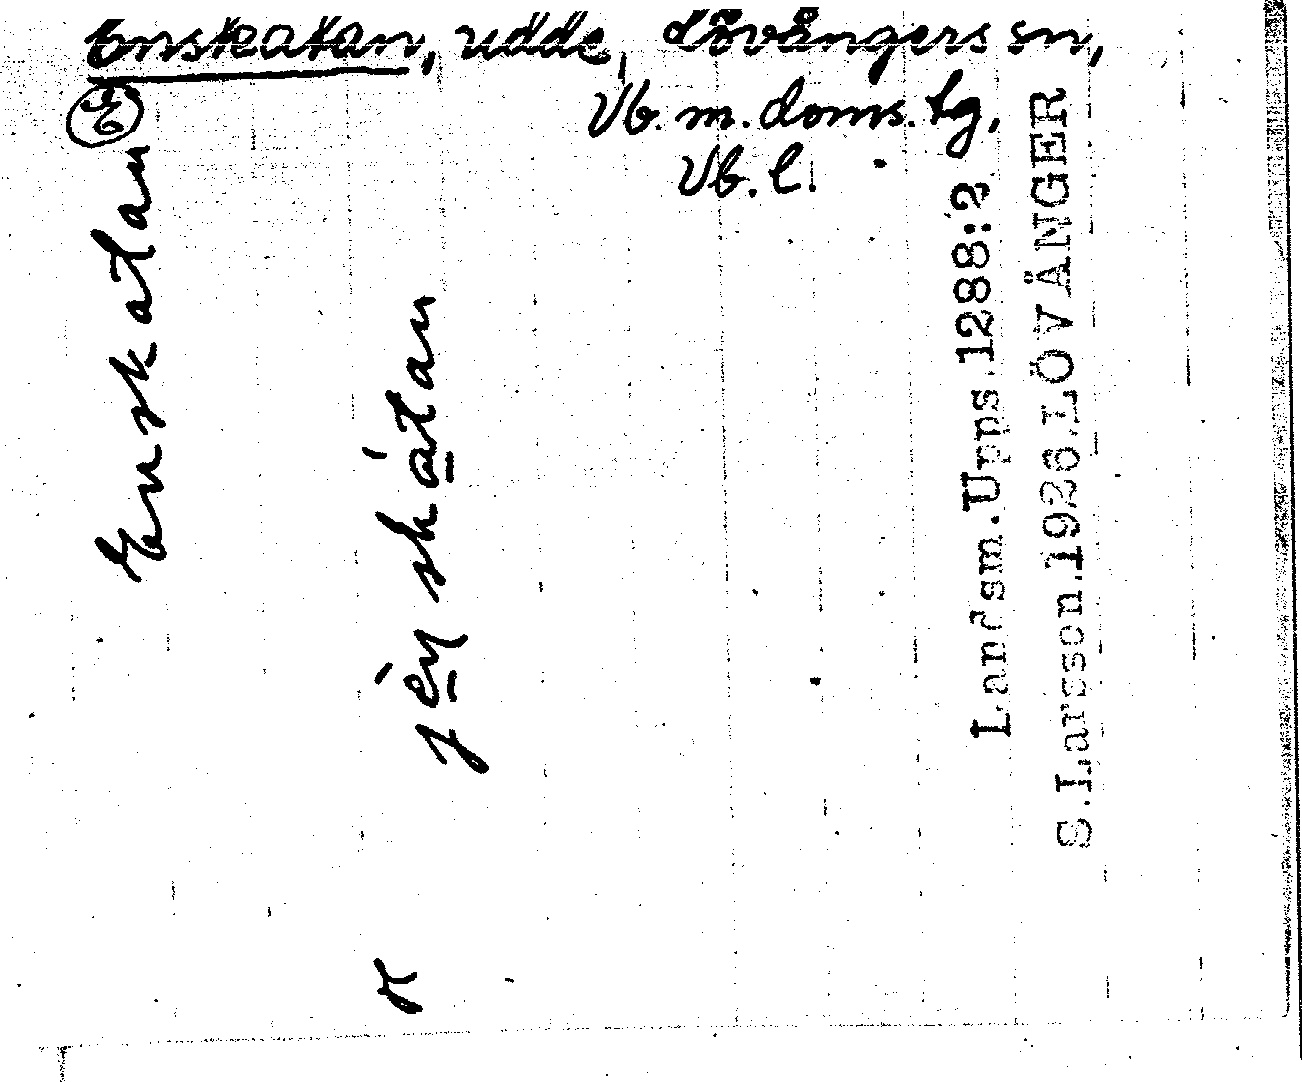 Enskatan, udde, Lövångers sn,
Vb. m. doms. tg,
Vb. l.
E
Enskatan
Landsm. Upps. 1288:2
S. Larsson. 1926. LÖVÅNGER